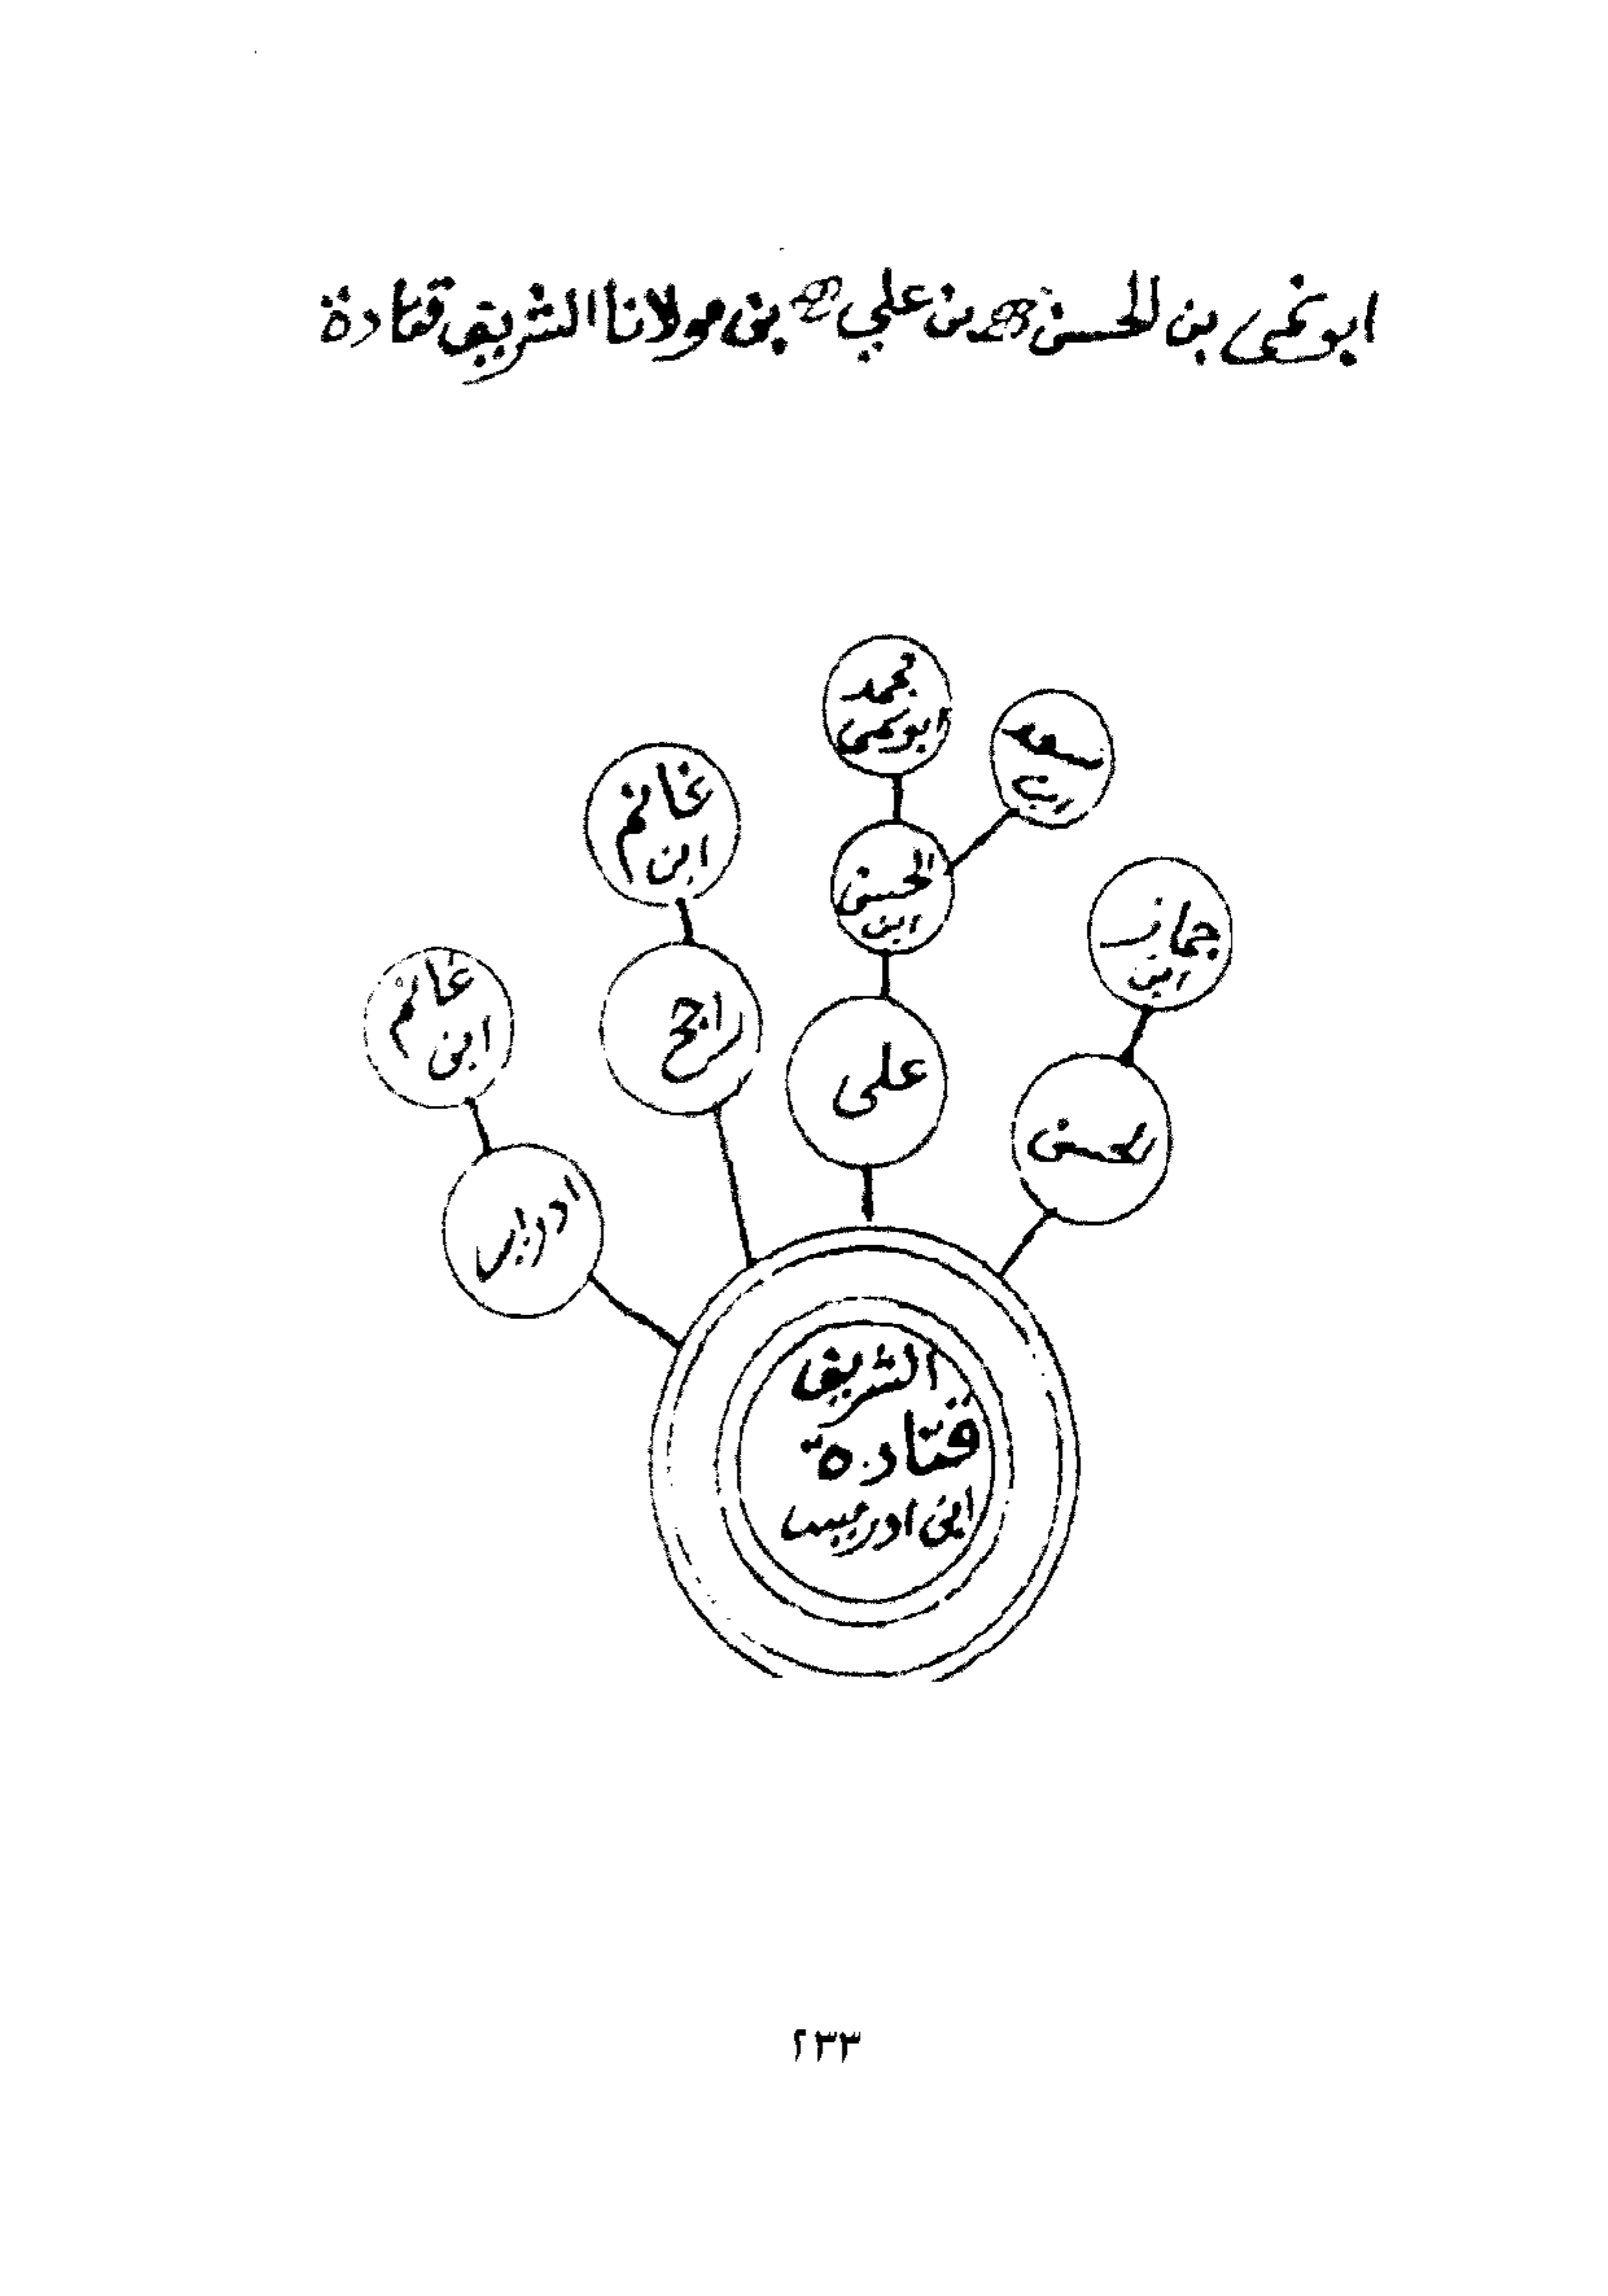 ابو نمى بن الحسن بن علي بن مولانا الشريف قتادة
محمد
ابو نمى
سعد
ابن
غانم
ابن
الحسن
ابن
جماز
ابن
غانم
ابن
راجح
على
الحسن
ادريس
الشريف
قتادة
ابن ادريس
٢٣٣